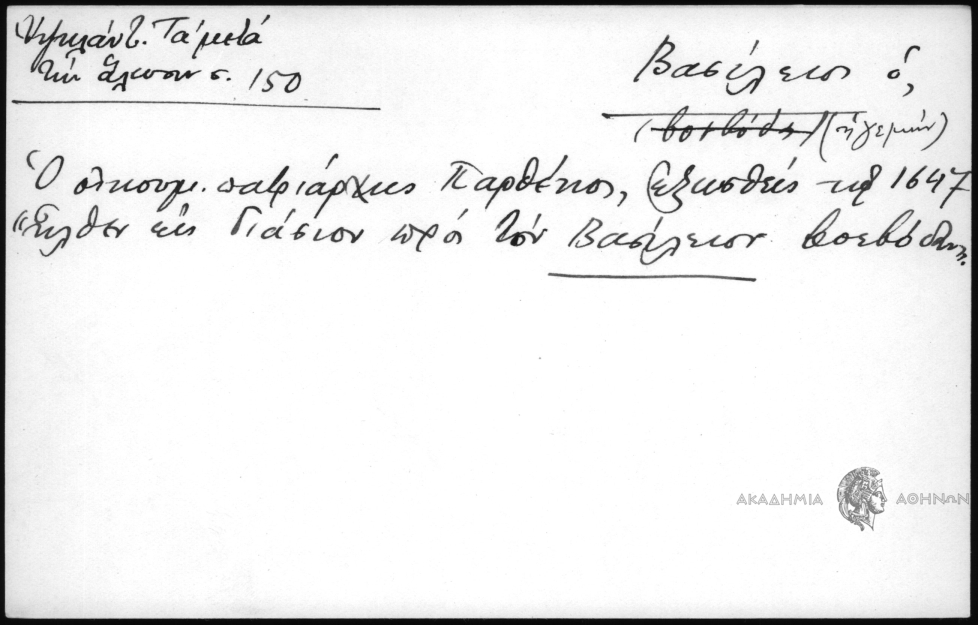 Ὑψηλάντ. Τὰ μετὰ
τὴν ἅλωσιν σ. 150
Βασίλειος ὁ,
(βοεβόδας) (ἡγεμών)
Ὁ οἰκουμ. πατριάρχης Παρθένιος, ἐξωσθεὶς τῷ 1647
"ἦλθεν εἰς Γιάσιον πρὸς τὸν Βασίλειον βοεβόδαν".
ΑΚΑΔΗΜΙΑ ΑΘΗΝΩΝ